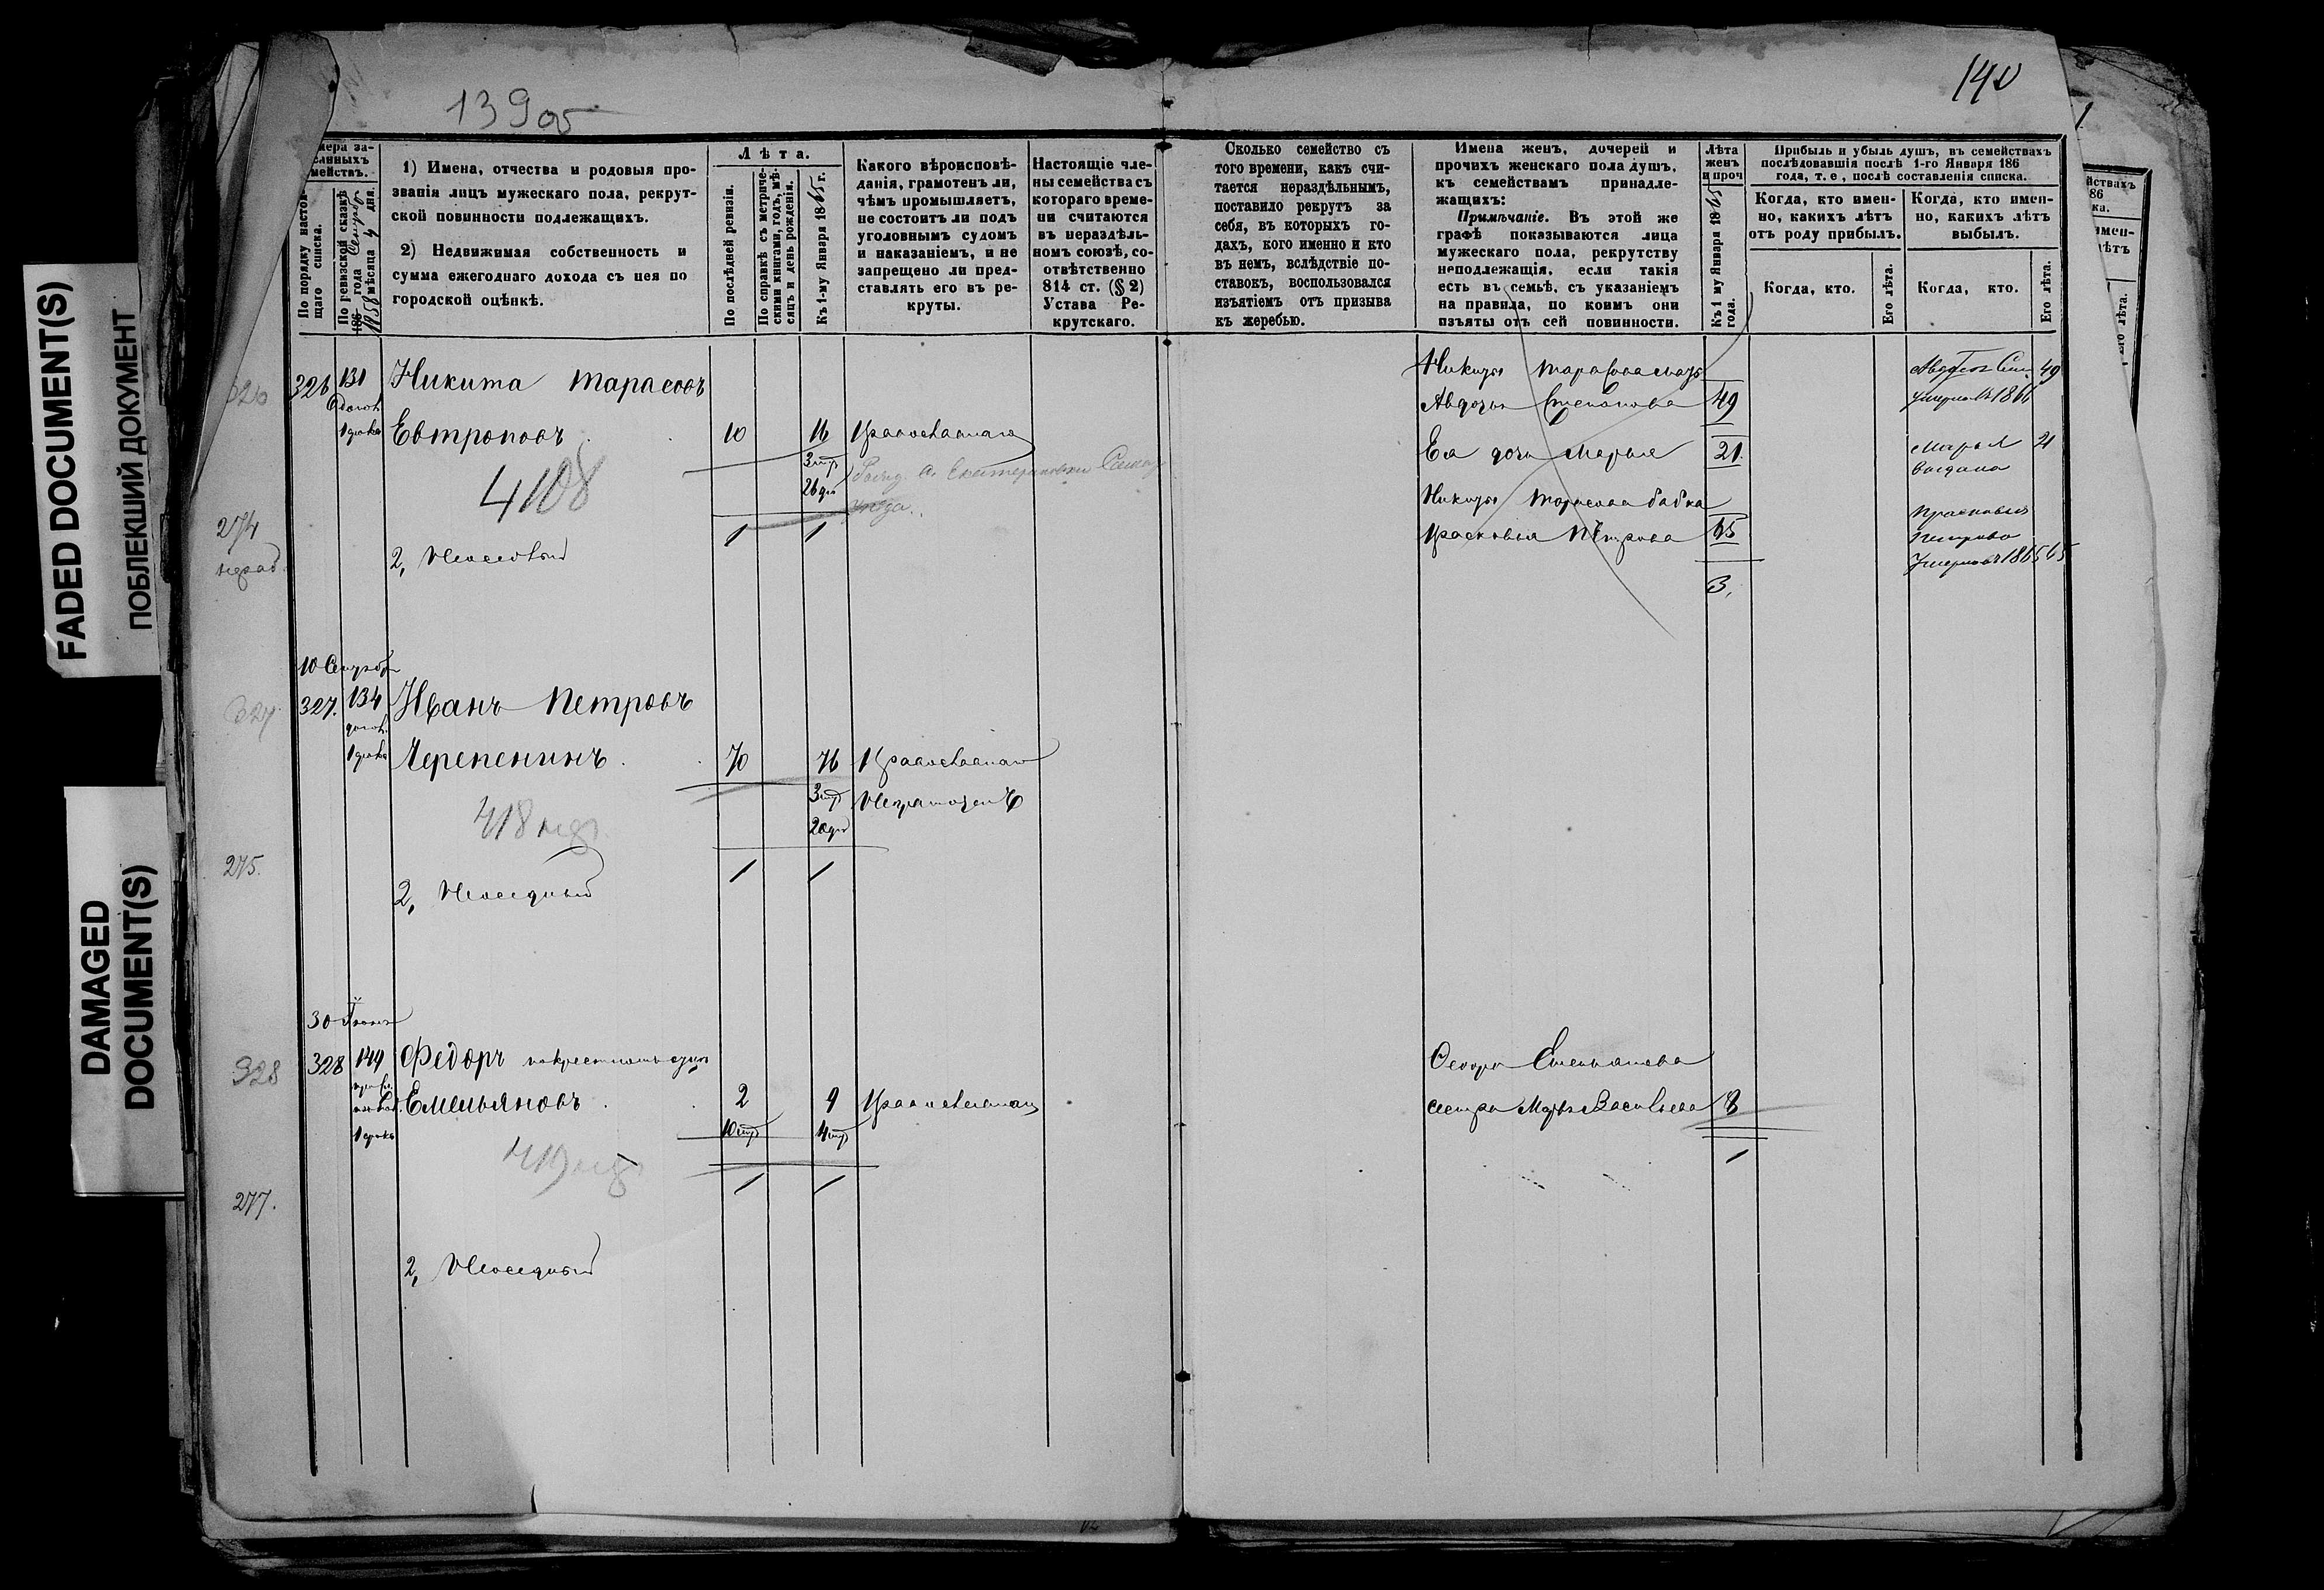 FADED DOCUMENT(S)
ПОБЛЕКШИЙ ДОКУМЕНТ
DAMAGED
DOCUMENT(S)
139об
140
мера за-
санныхъ
мействъ.
По порядку настоя-
щаго списка.
По ревизской сказкѣ
186 года
1858 мѣсяца 4 дня.
1) Имена, отчества и родовыя про-
званія лицъ мужескаго пола, рекрут-
ской повинности подлежащихъ.
2) Недвижимая собственность и
сумма ежегоднаго дохода съ нея по
городской оцѣнкѣ.
Лѣта.
По послѣдней ревизіи.
По справкѣ съ метриче-
скими книгами, годъ, мѣ-
сяцъ и день рожденія.
Къ 1-му Января 1865 г.
Какого вѣроисповѣ-
данія, грамотенъ ли,
чѣмъ промышляетъ,
не состоитъ ли подъ
уголовнымъ судомъ
и наказаніемъ, и не
запрещено ли пред-
ставлять его въ ре-
круты.
Настоящіе чле-
ны семейства съ
котораго време-
ни считаются
въ нераздѣль-
номъ союзѣ, со-
отвѣтственно
814 ст. (§ 2)
Устава Ре-
крутскаго.
Сколько семейство съ
того времени, какъ счи-
тается нераздѣльнымъ,
поставило рекрутъ за
себя, въ которыхъ го-
дахъ, кого именно и кто
въ немъ, вслѣдствіе по-
ставокъ, воспользовался
изъятіемъ отъ призыва
къ жеребью.
Имена женъ, дочерей и
прочихъ женскаго пола душъ,
къ семействамъ принадле-
жащихъ:
Примѣчаніе. Въ этой же
графѣ показываются лица
мужескаго пола, рекрутству
неподлежащія, если такія
есть въ семьѣ, съ указаніемъ
на правила, по коимъ они
изъяты отъ сей повинности.
Лѣта
женъ
и проч
Къ 1 му Января 1865
года.
Прибыль и убыль душъ, въ семействахъ
послѣдовавшія послѣ 1-го Января 186
года, т. е, послѣ составленія списка.
Когда, кто имен-
но, какихъ лѣтъ
отъ роду прибылъ.
Когда, кто имен-
но, какихъ лѣтъ
выбылъ.
Когда, кто.
Его лѣта.
Когда, кто.
Его лѣта.
326 131 Никита Тарасовъ
Евтроповъ 10 16 Православнаго
3 26
4108
274
1 1
2,
Никиты Тарасова мать
Авдотья Степанова 49
Ея дочь Марья 21
Никиты Тарасова бабка
Прасковья Петрова 65
3.
49
умерла въ 1866
Марья 21
выдана
Прасковья
Петрова
умерла въ 1865 65
10
327. 134 Иванъ Петровъ
Черепенинъ 70 76 Православнаго
3 Неграмотенъ
20
418
275.
1 1
2, Неоседлый
30
328 328 149 Федоръ
Емельяновъ 2 9 Православнаго
10 4
419
277.
1 1
2, Неоседлый
Федора Емельянова
сестра Марья Васильева 8
1